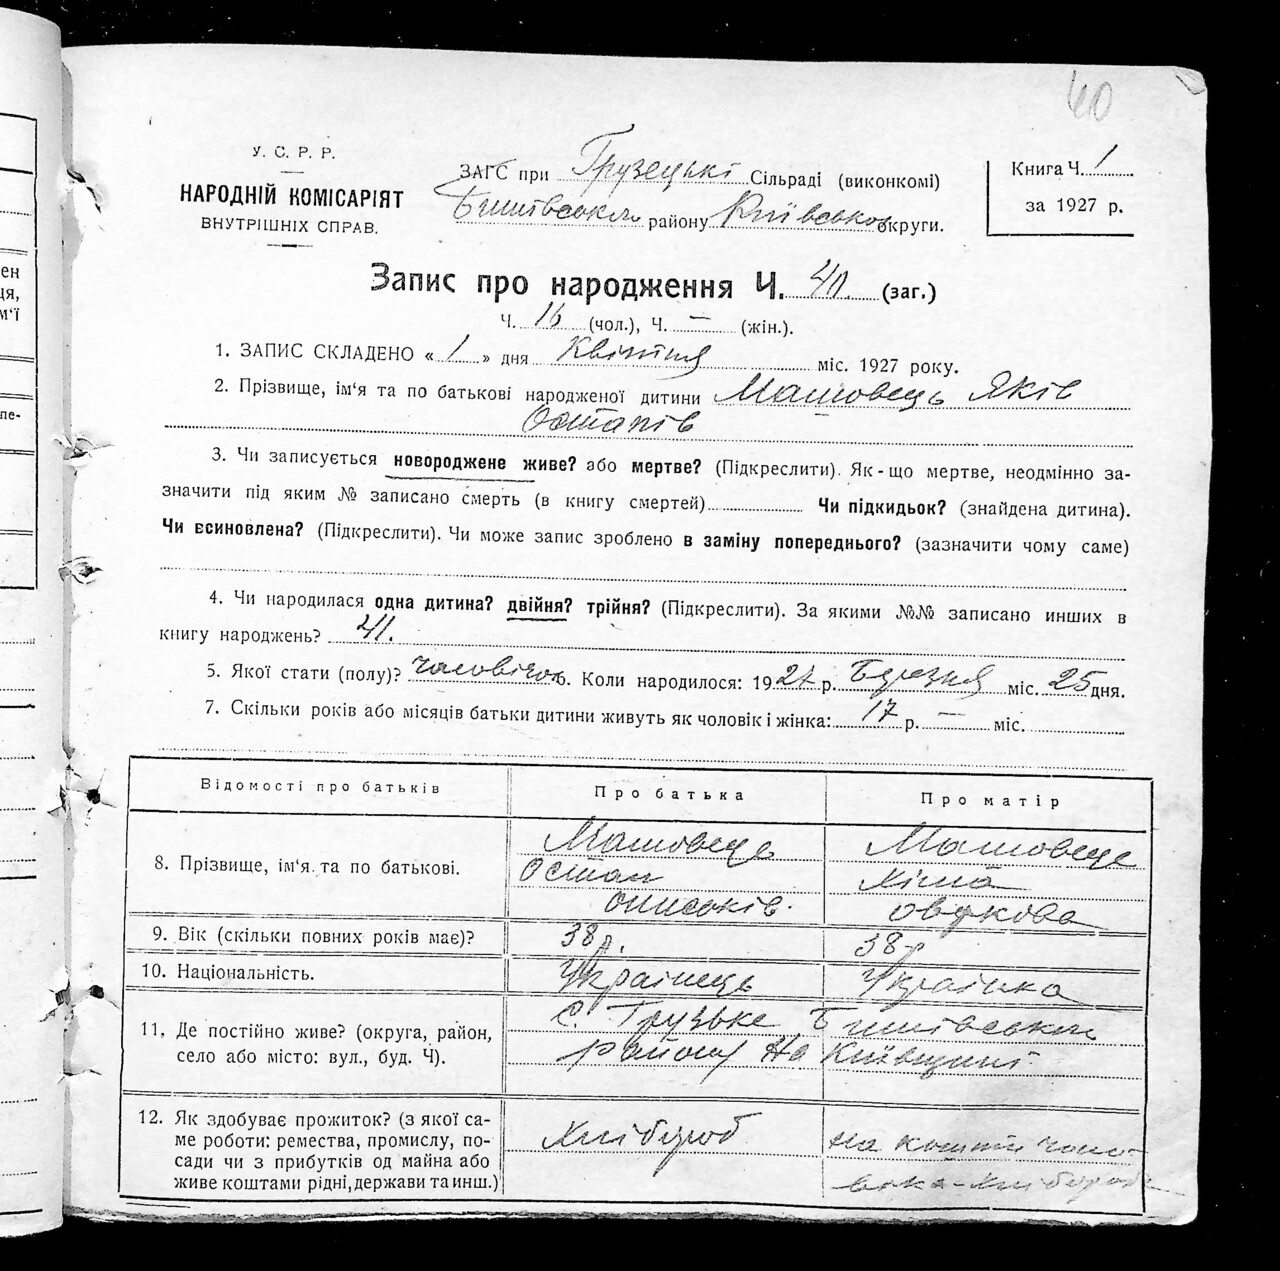 60
У. С. Р. Р.
НАРОДНІЙ КОМІСАРІЯТ
ВНУТРІШНІХ СПРАВ.
ЗАГС при Грузецькі Сільраді (виконкомі)
Бишівськом району Київською округи.
Книга Ч. 1
за 1927 р.
Запис про народження Ч. 40. (заг.)
Ч. 16 (чол.), Ч. — (жін.).
1. ЗАПИС СКЛАДЕНО « 1 » дня Квітня міс. 1927 року.
2. Прізвище, ім'я та по батькові народженої дитини Машовець Яків
Остапів
3. Чи записується новороджене живе? або мертве? (Підкреслити). Як-що мертве, неодмінно за-
значити під яким № записано смерть (в книгу смертей) Чи підкидьок? (знайдена дитина).
Чи всиновлена? (Підкреслити). Чи може запис зроблено в заміну попереднього? (зазначити чому саме)
4. Чи народилася одна дитина? двійня? трійня? (Підкреслити). За якими №№ записано инших в
книгу народжень? 41.
5. Якої стати (полу)? 6. Коли народилося: 1927 р. Березня міс. 25 дня.
7. Скільки років або місяців батьки дитини живуть як чоловік і жінка: 17 р. — міс.
Відомості про батьків
Про батька
Про матір
8. Прізвище, ім'я та по батькові.
Машовець
Остап
Машовець
9. Вік (скільки повних років має)?
38 р.
38 р
10. Національність.
Українець
Українка
11. Де постійно живе? (округа, район,
село або місто: вул., буд. Ч).
С. Грузьке Бишівськом
району на Київщині
12. Як здобуває прожиток? (з якої са-
ме роботи: ремества, промислу, по-
сади чи з прибутків од майна або
живе коштами рідні, держави та инш.)
Хлібороб
на кошти чоло-
віка-хлібороба
ен
ця,
м'ї
пе-